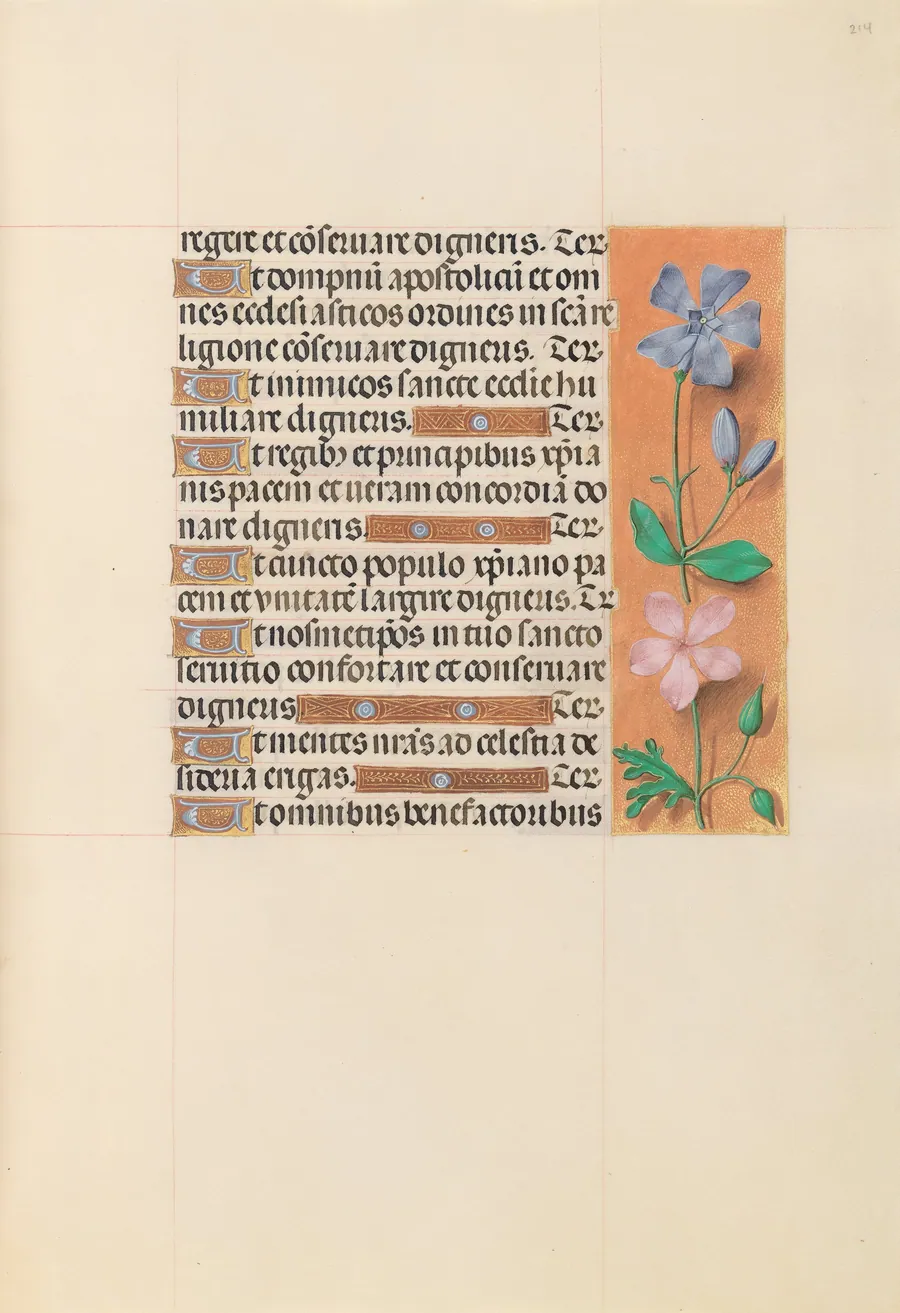 214
regere et cõseruare digneris. Ter
Ut dompnũ apostolicũ et om
nes ecclesiasticos ordines in scã re
ligione cõseruare digneris. Ter
Ut inimicos sancte ecclie hu
miliare digneris. Ter
Ut regibꝫ et principibus xp̃ia
nis pacem et ueram concordiã do
nare digneris. Ter
Ut cuncto populo xp̃iano pa
cem et vnitatẽ largire digneris. Tr
Ut nosmetip̃os in tuo sancto
seruitio confortare et conseruare
digneris Ter
Ut mentes nr̃as ad celestia de
sideria erigas. Ter
Ut omnibus benefactoribus